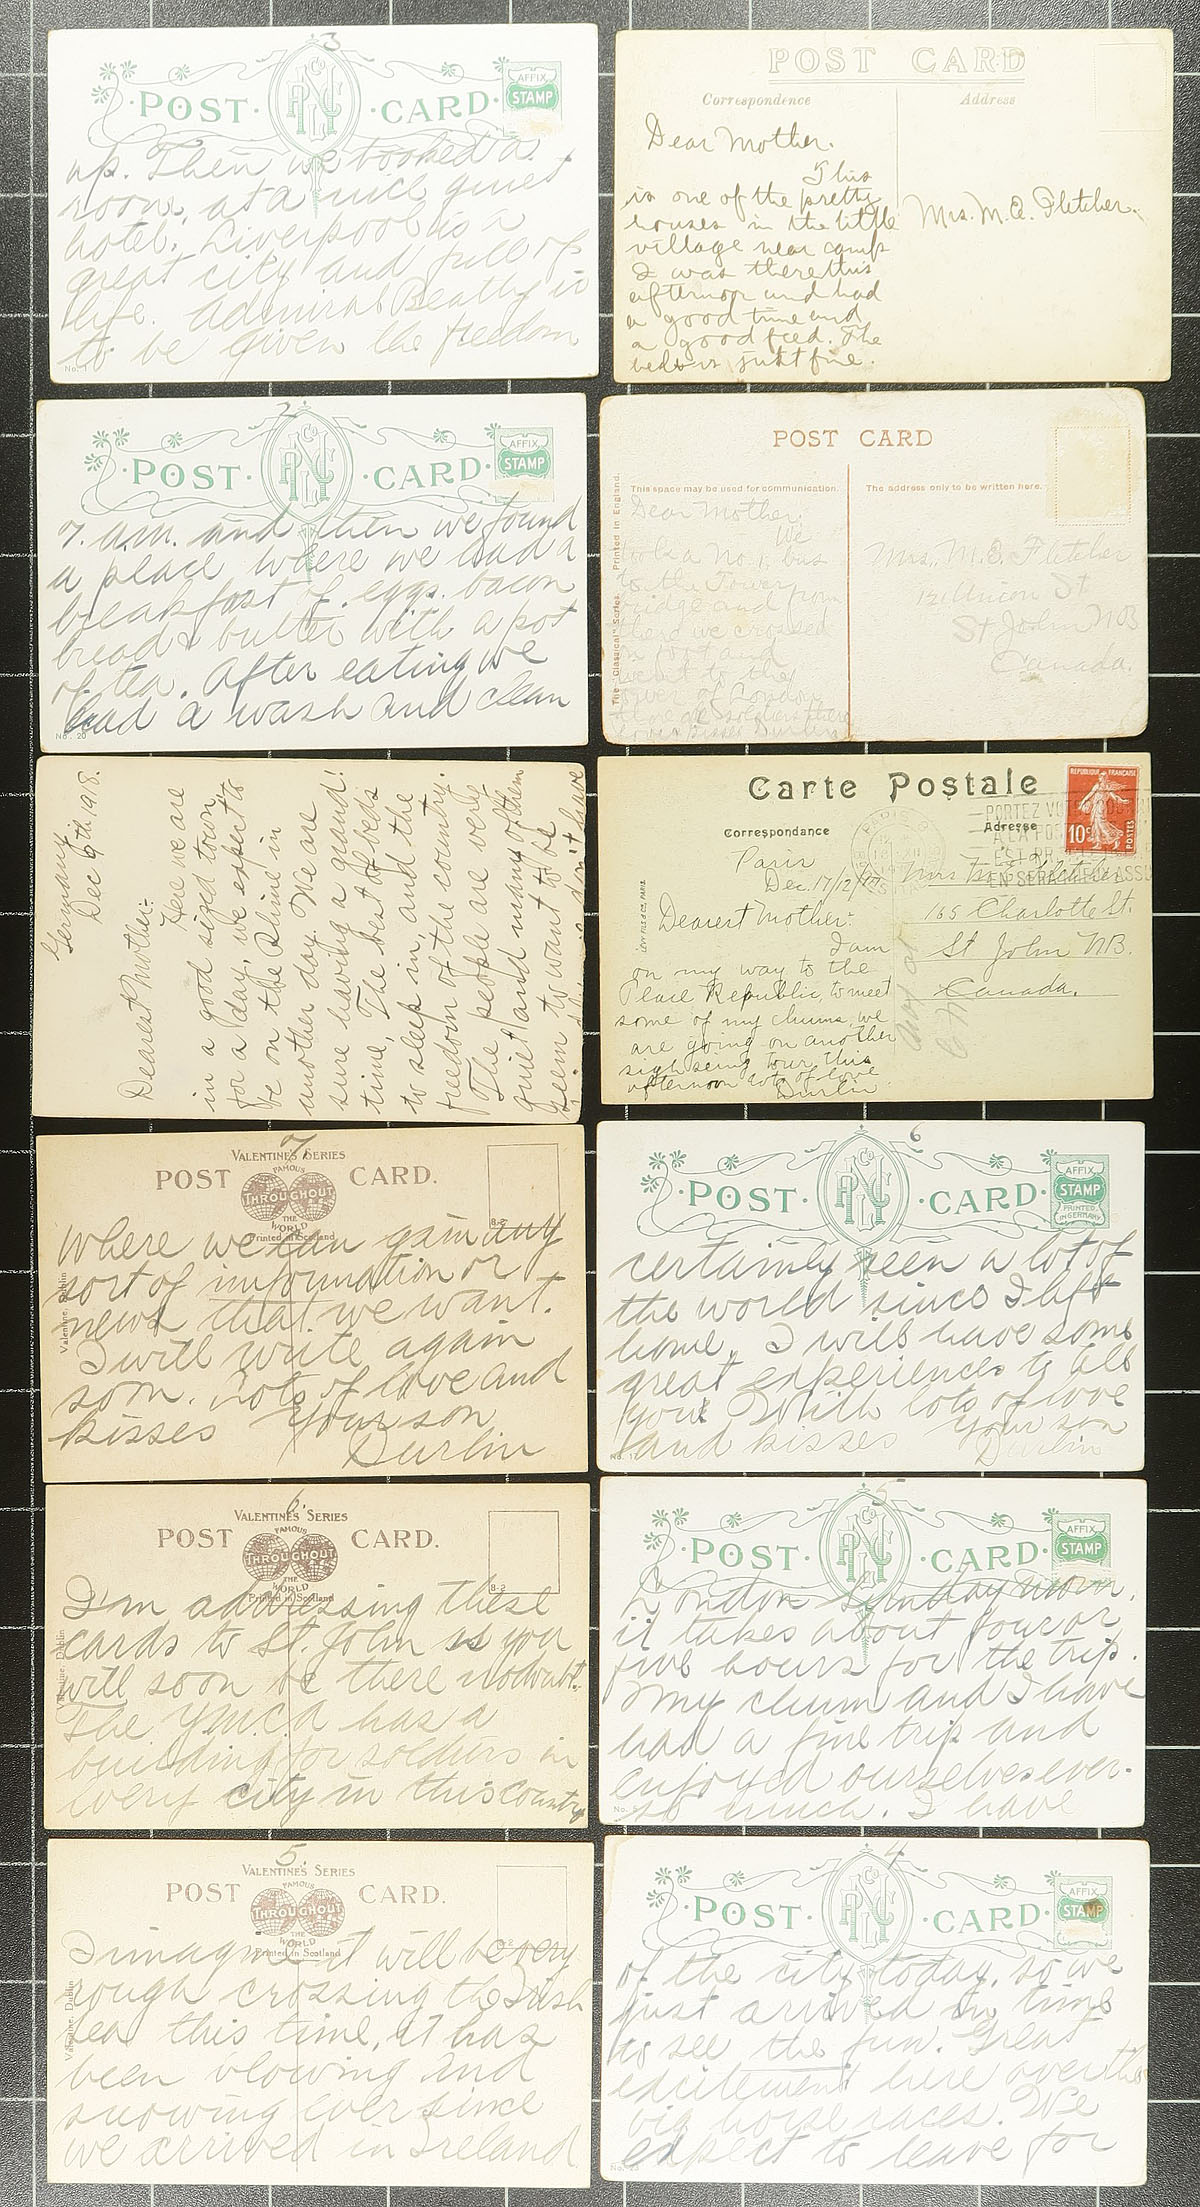 3
POST CARD
AFFIX
STAMP
up. Then we booked a
room, at a nice quiet
hotel. Liverpool is a
great city and full of
life. Admiral Beatty is
to be given the freedom
No. 1
POST CARD
Correspondence
Address
Dear Mother.
This
is one of the pretty
houses in the little
village near camp
I was there this
afternoon and had
a good time and
a good feed. The
beds is just fine.
Mrs. M. E. Fletcher.
2
POST CARD
AFFIX
STAMP
7. a.m. and then we found
a place where we had a
breakfast of eggs. bacon
bread & butter with a pot
of tea. After eating we
had a wash and clean
No. 20
POST CARD
This space may be used for communication.
The address only to be written here.
The "Classical" Series. Printed in England.
Dear Mother.
We
took a No. 1. bus
to the Tower
bridge and from
there we crossed
on foot and
went to the
tower of London
love & kisses Durlin
Mrs. M. E. Fletcher
121 Union St
St John NB
Canada.
Germany.
Dec 9th 1918.
Dearest Mother:-
Here we are
in a good sized town
for a day, we expect to
be on the Rhine in
another day. We are
sure having a grand!
time, The best of beds
to sleep in and the
freedom of the country.
The people are very
quiet and many of them
seem to want to be
don't have
Carte Postale
Correspondance
Adresse
REPUBLIQUE FRANÇAISE
10c
POSTES
PARIS
LEVY FILS ET Cie, PARIS
Paris
Dec. 17/12/17
Dearest Mother:
I am
on my way to the
Place Republic, to meet
some of my chums, we
are going on another
sigh seing tour this
afternoon lots of love
Durlin
Mrs M. E. Fletcher
165 Charlotte St.
St John NB.
Canada.
7
VALENTINE'S SERIES
POST CARD.
FAMOUS
THROUGHOUT
THE
WORLD
Printed in Scotland
B-2
Valentine, Dublin
Where we can gain any
sort of imformation or
news that we want.
I will write again
soon. Lots of love and
kisses Your son
Durlin
6
POST CARD
AFFIX
STAMP
PRINTED
IN GERMANY
certainly seen a lot of
the world since I left
home. I will have some
great experiences to tell
you. With lots of love
and kisses Your son
Durlin
6.
VALENTINE'S SERIES
POST CARD.
FAMOUS
THROUGHOUT
THE
WORLD
Printed in Scotland
B-2
Valentine, Dublin
I'm addressing these
cards to St. John as you
will soon be there nodoubt.
The YMCA has a
building for soldiers in
every city in this country
5
POST CARD
AFFIX
STAMP
London Sunday morn.
it takes about four or
five hours for the trip.
My chum and I have
had a fine trip and
enjoyed ourselves ever-
so much. I have
5.
VALENTINE'S SERIES
POST CARD.
FAMOUS
THROUGHOUT
THE
WORLD
Printed in Scotland
Valentine, Dublin
I imagine it will be very
rough crossing the Irish
sea this time, it has
been blowing and
snowing ever since
we arrived in Ireland
4
POST CARD
AFFIX
STAMP
of the city today. so we
just arrived in time
to see the fun. Great
excitement here over the
big horse races. We
expect to leave for